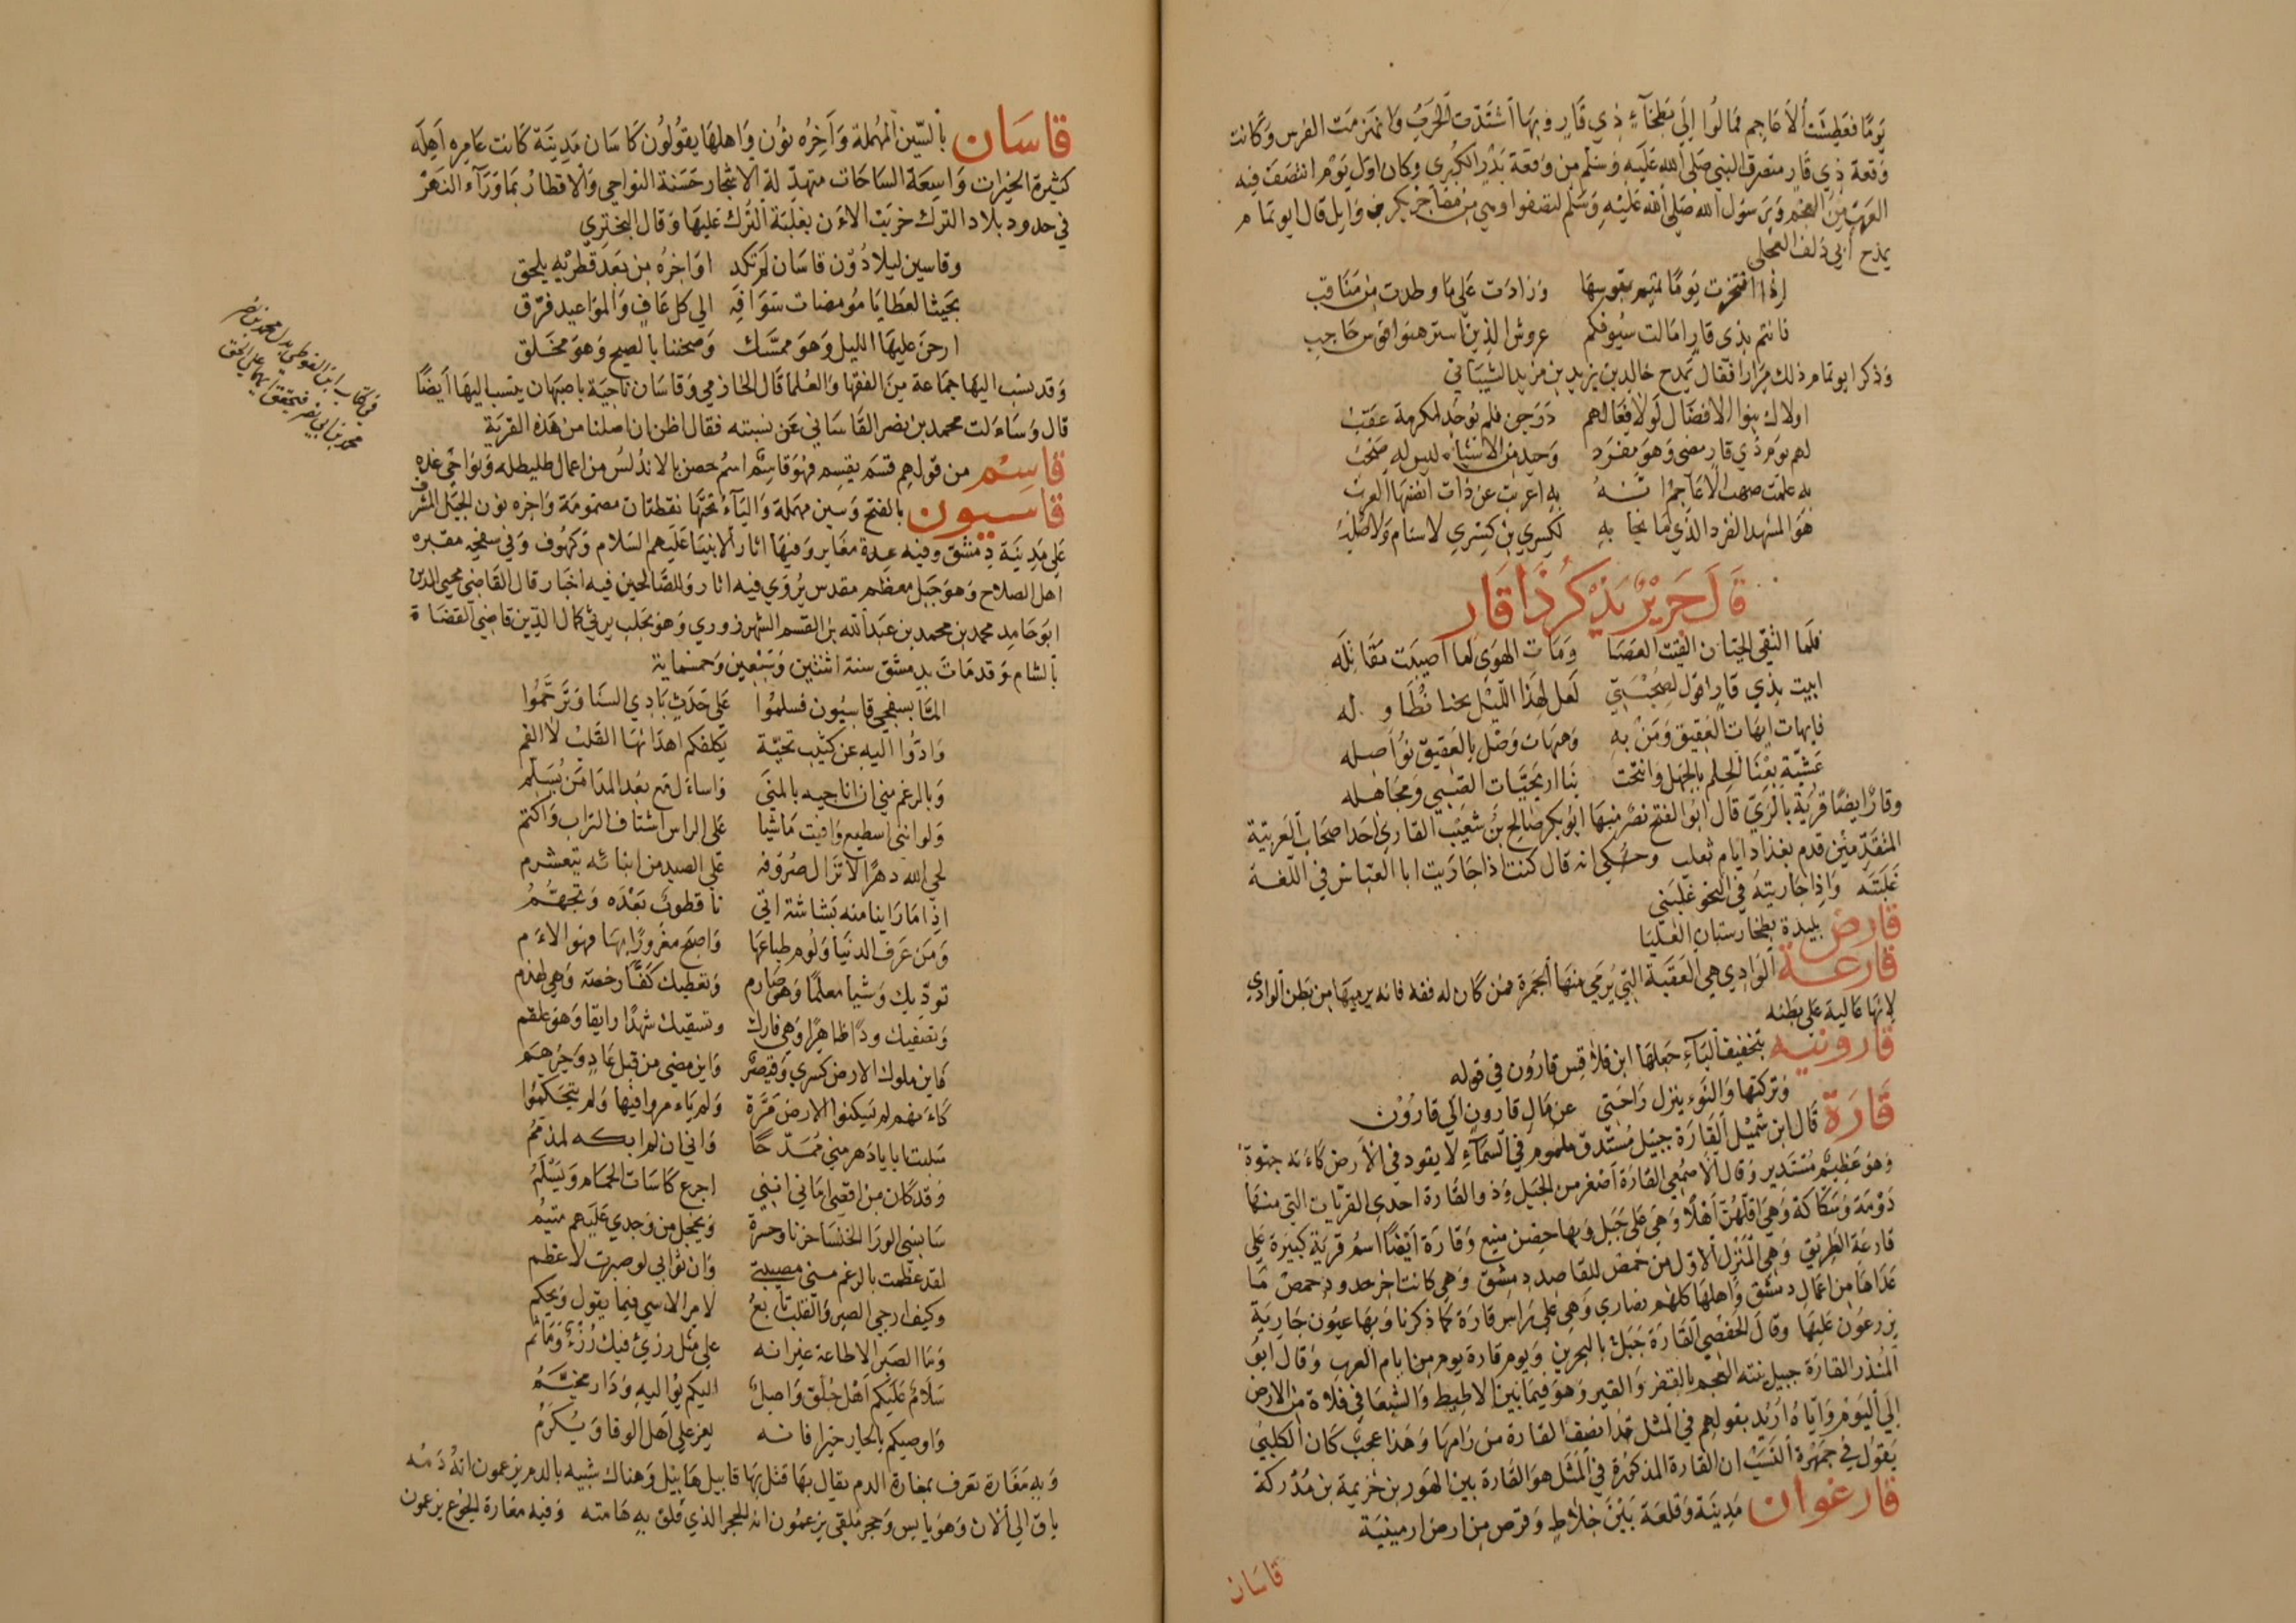 يومًا فعطشت الأعاجم فمالوا إلى بطحاء ذي قار وبها اشتدت الحرب وانهزمت الفرس وكانت
وقعة ذي قار منصرف النبي صلى الله عليه وسلم من وقعة بدر الكبرى وكان أول يوم انتصف فيه
العرب من العجم وبرسول الله صلى الله عليه وسلم انتصفوا وهي من مفاخر بكر بن وايل قال ابو تمام
يمدح أبي دلف العجلي
إذا افتخرت يومًا تميم بقوسها وزادت على ما وطدت من مناقب
فانتم بذي قار امالت سيوفكم عروش الذين استرهنوا قوس حاجب
وذكر ابو تمام ذلك مرارا فقال يمدح خالد بن يزيد بن مزيد الشيباني
اولاك بنوا الافضال لولا فعالهم درجن فلم يوجد لمكرمة عقب
لهم يوم ذي قار مضى وهو مفرد وحيد من الاشباه ليس له صحب
به علمت صهب الاعاجم انه به اعربت عن ذات انفسها العرب
هو المشهد الفرد الذي ما نجا به لكسرى بن كسرى لا سنام ولا صلب
قال جرير يذكر ذا قار
فلما التقى الحيان القيت العصا ومات الهوى لما اصيبت مقاتله
ابيت بذي قار اقول لصحبتي لعل لهذا الليل نحبا نطاوله
فايهات ايهات العقيق ومن به وهيهات وصل بالعقيق نواصله
عشية بعنا الحلم بالجهل وانتحت بنا اريحيات الصبي ومجاهله
وقار ايضا قرية بالري قال ابو الفتح نصر منها ابو بكر صالح بن شعيب القاري احد اصحاب العربية
المتقدمين قدم بغداد ايام ثعلب وحكي انه قال كنت اذا جاريت ابا العباس في اللغة
غلبته واذا جاريته في النحو غلبني
قارض بليدة بطخارستان العليا
قارعة الوادي هي العقبة التي يرمي منها الجمرة فمن كان له فقه فانه يرميها من بطن الوادي
لانها عالية على بطنه
قارونيه بتخفيف الياء جعلها ابن قلاقس قارون في قوله
وتركتها والنوء ينزل راحتى عن مال قارون الى قارون
قارة قال ابن شميل القارة جبيل مستدق ملموم في السماء لا يقود في الارض كأنه جثوة
وهو عظيم مستدير وقال الاصمعي القارة اصغر من الجبل وذو القارة احدى القريات التي منها
دومة وسكاكة وهي اقلهن أهلا وهي على جبل وبها حصن منيع وقارة ايضا اسم قرية كبيرة على
قارعة الطريق وهي المنزل الاول من حمص للقاصد دمشق وهي كانت اخر حدود حمص ما
عداها من اعمال دمشق واهلها كلهم نصارى وهي على راس قارة كما ذكرنا وبها عيون جارية
يزرعون عليها وقال الحفصي القارة جبل بالبحرين ويوم قارة يوم من ايام العرب وقال ابو
المنذر القارة جبيل بنته العجم بالقفر والقير وهو فيما بين الاطيط والشبعا في فلاة من الارض
الى اليوم واياه اريد بقولهم في المثل قد انصف القارة من راماها وهذا عجب كان الكلبي
يقول في جمهرة النسب ان القارة المذكورة في المثل هو القارة بين الهون بن خزيمة بن مدركة
قارغوان مدينة وقلعة بين خلاط وقرص من ارض ارمينية
قاسان
قاسان بالسين المهملة وآخره نون واهلها يقولون كاسان مدينة كانت عامره اهله
كثيرة الخيرات واسعة الساحات متهدلة الاشجار حسنة النواحي والاقطار بما وراء النهر
في حدود بلاد الترك خربت الان بغلبة الترك عليها وقال البحتري
وقاسين ليلا دون قاسان لم تكد اواخره من بعد قطريه يلحق
بحيث العطايا مومضات سوافه الى كل عاف والمواعيد فرق
ارحن عليها الليل وهو ممسك وصبحننا بالصبح وهو مخلق
وقد نسب اليها جماعة من الفقها والعلما قال الحازمي وقاسان ناحية باصبهان ينسب اليها ايضا
قال وساءلت محمد بن نصر القاساني عن نسبته فقال اظن ان اصلنا من هذه القرية
في كتاب ابن الفوطي بدل محمد بن نصر
محمد بن ابي نصر فتحقق ايهما على الحق
قاسم من قولهم قسم يقسم فهو قاسم اسم حصن بالاندلس من اعمال طليطله ونواحي غده
قاسيون بالفتح وسين مهملة والياء تحتها نقطتان مضمومة واخره نون الجبل المشرف
على مدينة دمشق وفيه عدة مغاير وفيها اثار الانبيا عليهم السلام وكهوف وفي سفحه مقبره
اهل الصلاح وهو جبل معظم مقدس يروي فيه اثار وللصالحين فيه اخبار قال القاضي محيي الدين
ابو حامد محمد بن محمد بن عبد الله بن القسم الشهرزوري وهو بحلب يرثي كمال الدين قاضي القضاة
بالشام وقد مات بدمشق سنة اثنتين وسبعين وخمسماية
الما بسفحي قاسيون فسلموا على جدث بادي السنا وترحموا
وادوا اليه عن كثيب تحية يكلفكم اهداؤها القلب لا الفم
وبالرغم مني ان اناجيه بالمنى واساءل مع بعد المدا من يسلم
ولو انني اسطيع وافيت ماشيا على الراس استاف التراب واكتم
لحى الله دهرا لا تزال صروفه على الصيد من ابنائه تتغشرم
اذا ما راينا منه بشاشة اتى نا قطوب بعده وتجهم
ومن عرف الدنيا ولوم طباعها واصبح مغرورا بها فهو الاءم
تردّيك وشيا معلما وهو صارم وتعطيك كفا رخصة وهي لهذم
وتصفيك ودا ظاهرا وهي فارك وتسقيك شهدا رايقا وهو علقم
فاين ملوك الارض كسرى وقيصر واين مضى من قبل عاد وجرهم
كاءنهم لم يسكنوا الارض مرة ولم ياءمروا فيها ولم يتحكموا
سلبت ابا يا دهر مني ممدحا واني ان لم ابكه لمذمم
وقد كان من اقصى اماني انني اجرع كاسات الحمام ويسلم
سانسى الورا الخنسا حزنا وحسرة ويخجل من وجدي عليهم متيم
لقد عظمت بالرغم مني مصيبتي وان ثوابي لو صبرت لاعظم
وكيف ارجي الصبر والقلب تابع لامر الاسى فيما يقول ويحكم
وما الصبر الا طاعة غير انه على مثل رزئي فيك رزء وماثم
سلام عليكم اهل جلق واصل اليكم يواليه ودار مخيم
واوصيكم بالجار خيرا فانه يعز على اهل الوفا ويكرم
وبه مغارة تعرف بمغارة الدم يقال بها قتل بها قابيل هابيل وهناك شبيه بالدم يزعمون انه دمه
باق الى الان وهو يابس وحجر ملقى يزعمون انه للحجر الذي فلق به هامته وفيه مغارة الجوع يزعمون